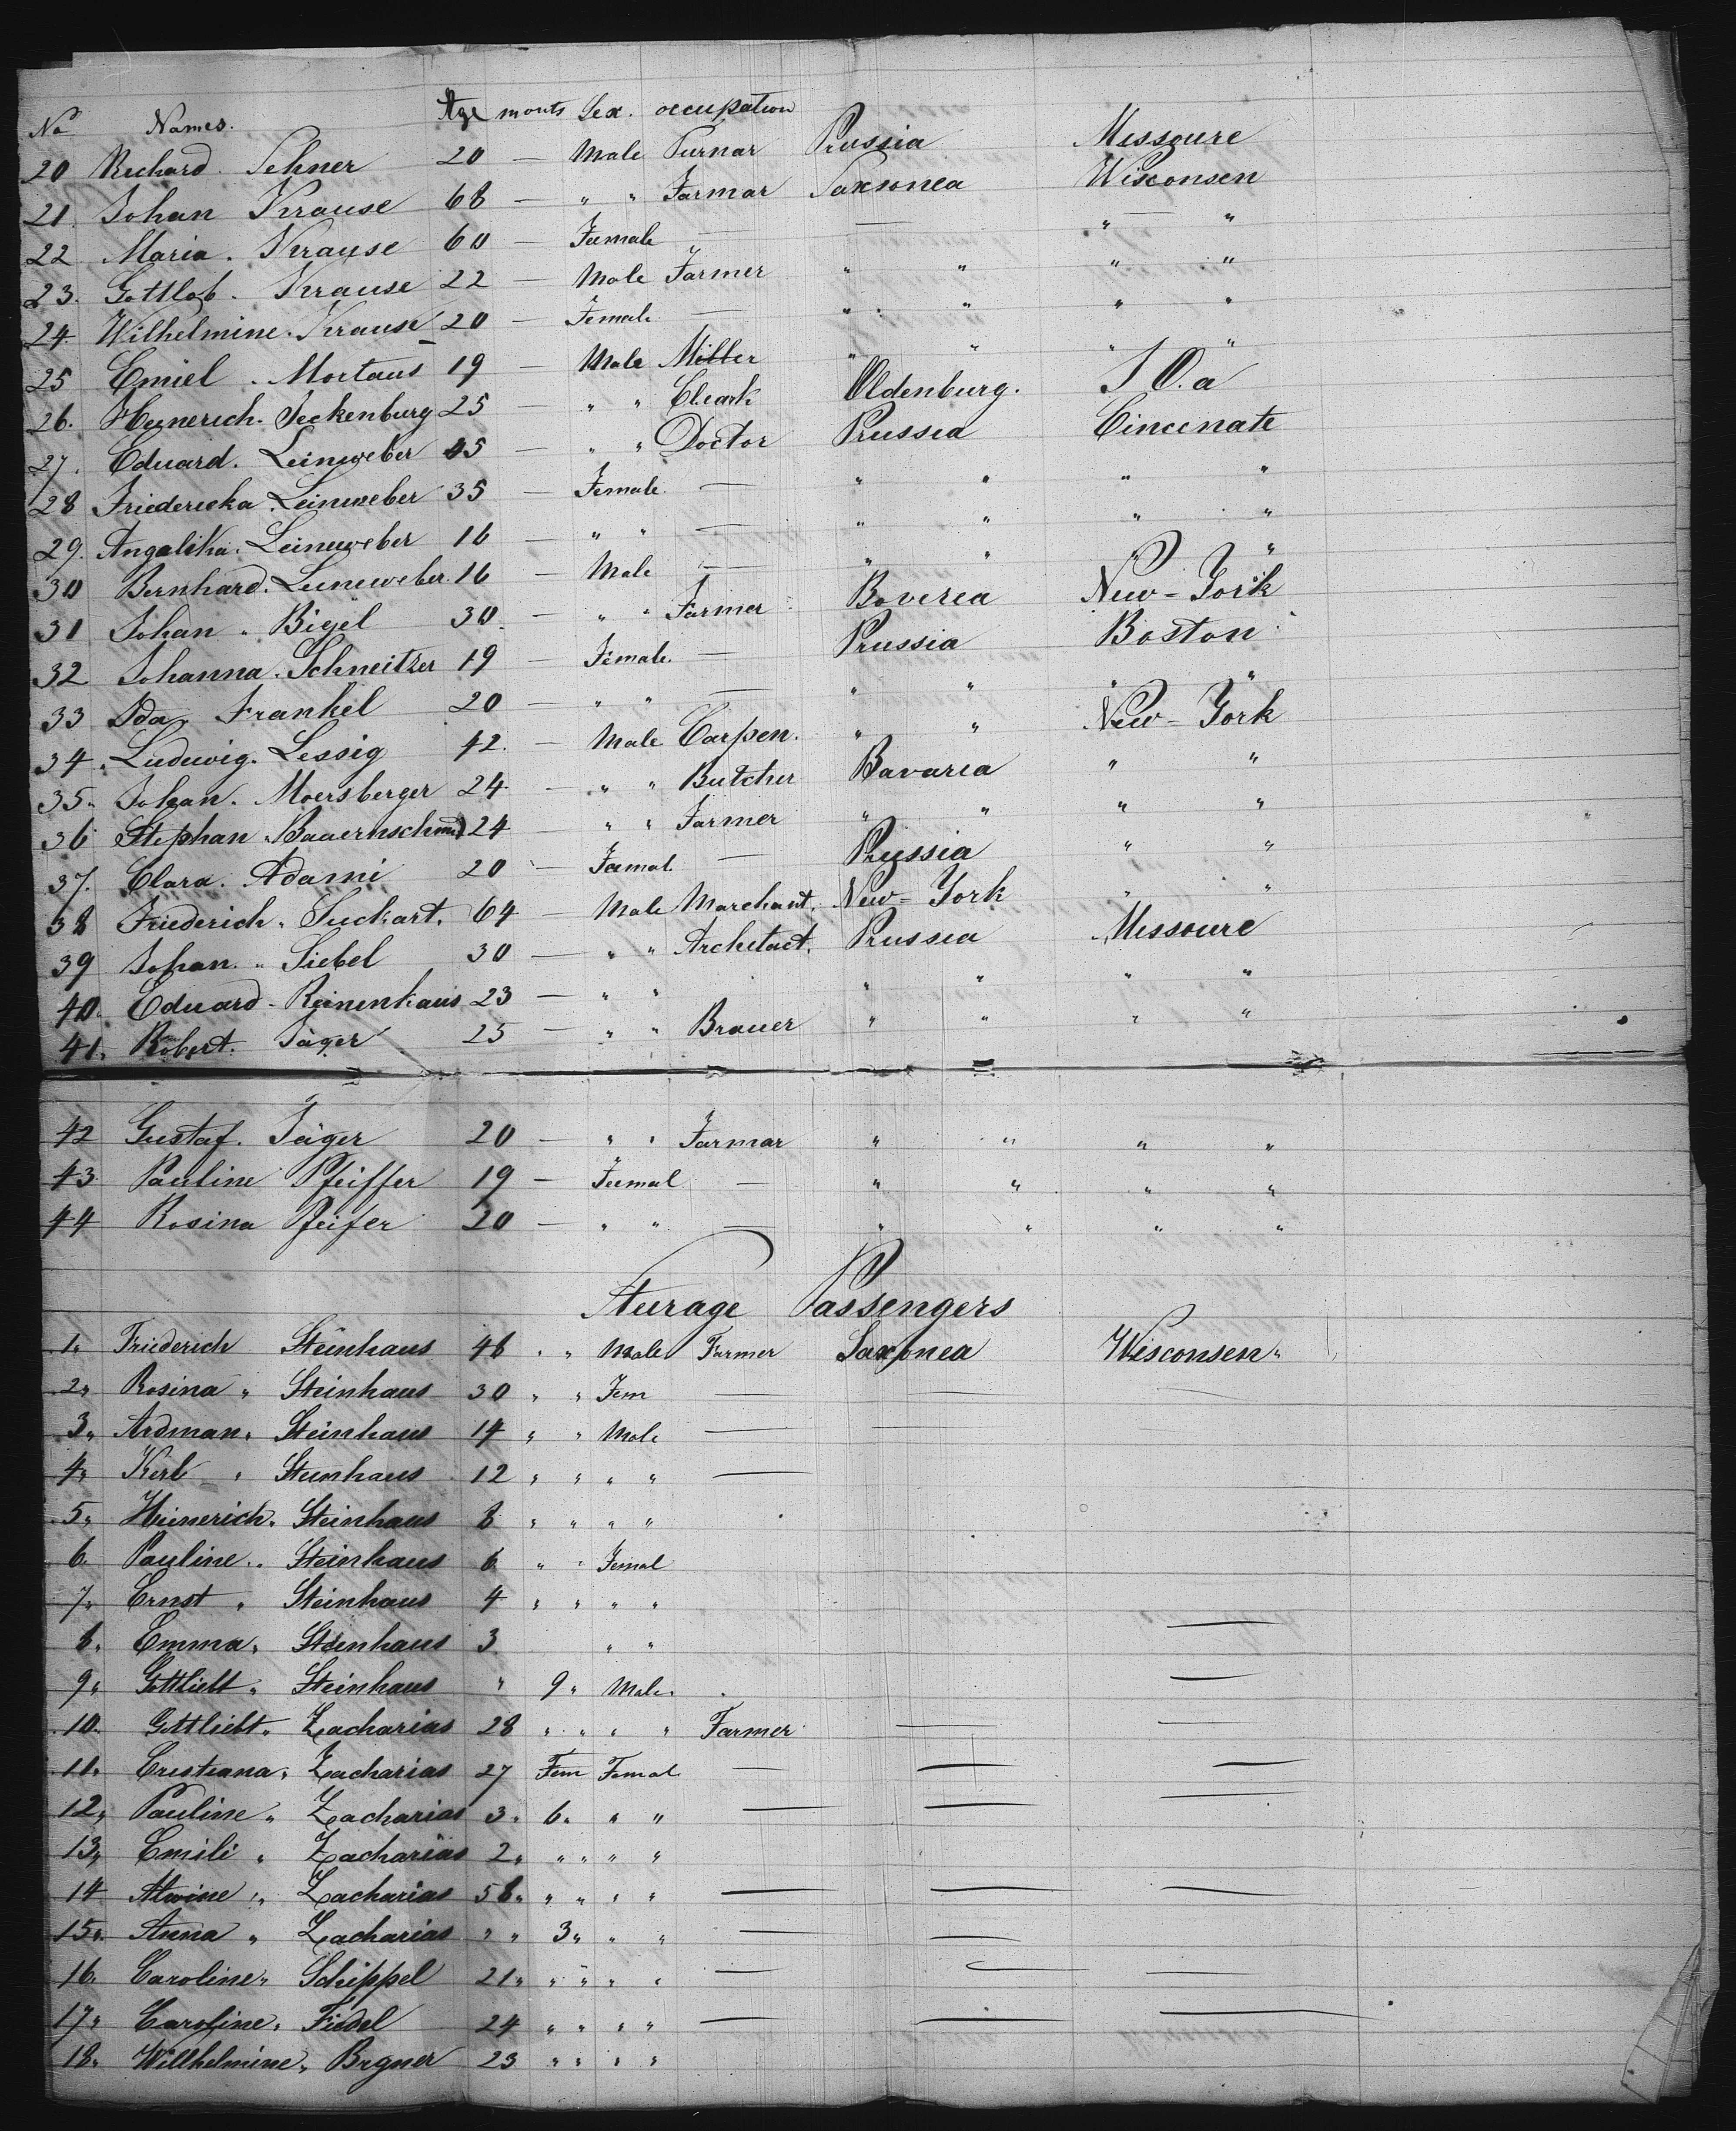 No Names. Age monts Sex. occupation
20 Richard. Sehner 20 — Male Turnar Prussia Missoure
21. Johan Krause 68 — " " Farmar Saxsonea Wisconsen
22 Maria. Krause 60 — Feemale — — " — "
23. Gottlob. Krause 22 — Male Farmer " " " "
24. Wilhelmine. Krause 20 — Female — " " " "
25 Emiel. Mortaus 19 — Male Miller " " " "
26. Heinerich. Jeckenburg 25 — " " Cleark Oldenburg. I O. a
27. Eduard. Leineweber 45 — " " Doctor Prussea Cincenate
28 Friedericka. Leineweber 35 — Female. — " " " "
29. Angelika. Leineweber 16 — " " — " " " "
30 Bernhard. Leineweber. 16 — Male — " " " "
31 Johan. Bigel 30. — " " Farmer Boverea New-York
32 Johanna. Schneitzer 19 — Female. — Prussia Boston
33 Ida. Frankel 20 — " " — " " " "
34. Ludewig. Lessig 42. — Male Carpen. " " New-York
35. Johan. Moersberger 24. — " " Butcher Bavarea " "
36 Stephan. Bauernschmid 24 — " " Farmer " " " "
37. Clara. Adami 20 — Feemal. — Prussia " "
38 Friederich. Suckart. 64 — Male Marchant. New-York " "
39 Johan. Siebel 30 — " " Architact. Prussea Missoure
40. Eduard. Reinenkaus 23 — " " " " " "
41. Robert. Jäger 25 — " " Brauer " " " "
42 Gustaf. Jäger 20 — " " Farmar " " " "
43. Pauline Pfeiffer 19 — Feemal — " " " "
44 Rosina Pfeifer 20 — " " — " " " "
Steurage Passengers
1. Friederich Steinhaus 48 " " Male Farmer Saxonea Wisconsen.
2. Rosina " Steinhaus 30 " " Fem — — —
3. Ardman. Steinhaus 14 " " Male — —
4. Kerl " Steinhaus 12 " " " " —
5. Heinerich. Steinhaus 8 " " " "
6. Pauline. Steinhaus 6. " " Femal
7. Ernst " Steinhaus 4 " " " "
8. Emma. Steinhaus 3 " " —
9. Gottliebt. Steinhaus " 9 " Male. —
10. Gottliebt. Zacharias 28 " " " " Farmer — —
11. Crestiana. Zacharias 27 Fem Femal — — —
12. Pauline " Zacharias 3. 6. " " — — —
13. Emili " Zacharias 2. " " " "
14 Alwine " Zacharias 58. " " " " — — —
15. Anna " Zacharias " " 3. " " — —
16. Caroline. Schippel 21. " " " " — — —
17. Caroline. Fiedel 24 " " " " — — —
18. Willhelmine. Bregner 23 " " " "